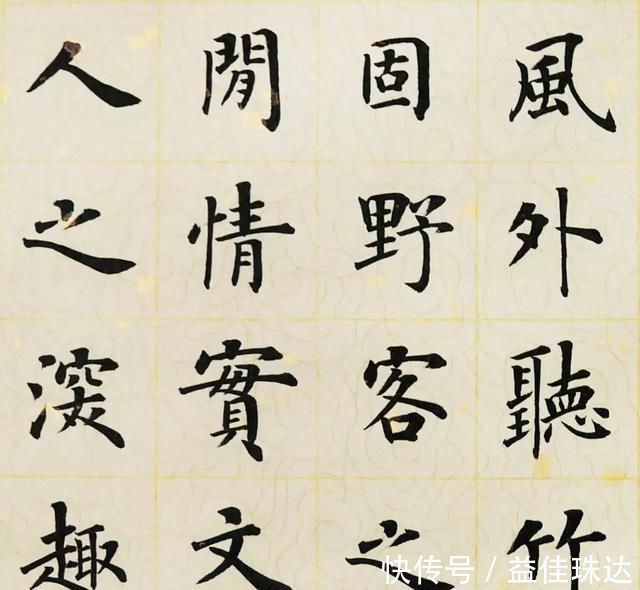 風外聽竹
固野客之
閒情實文
人之深趣
快传号/益佳珠达